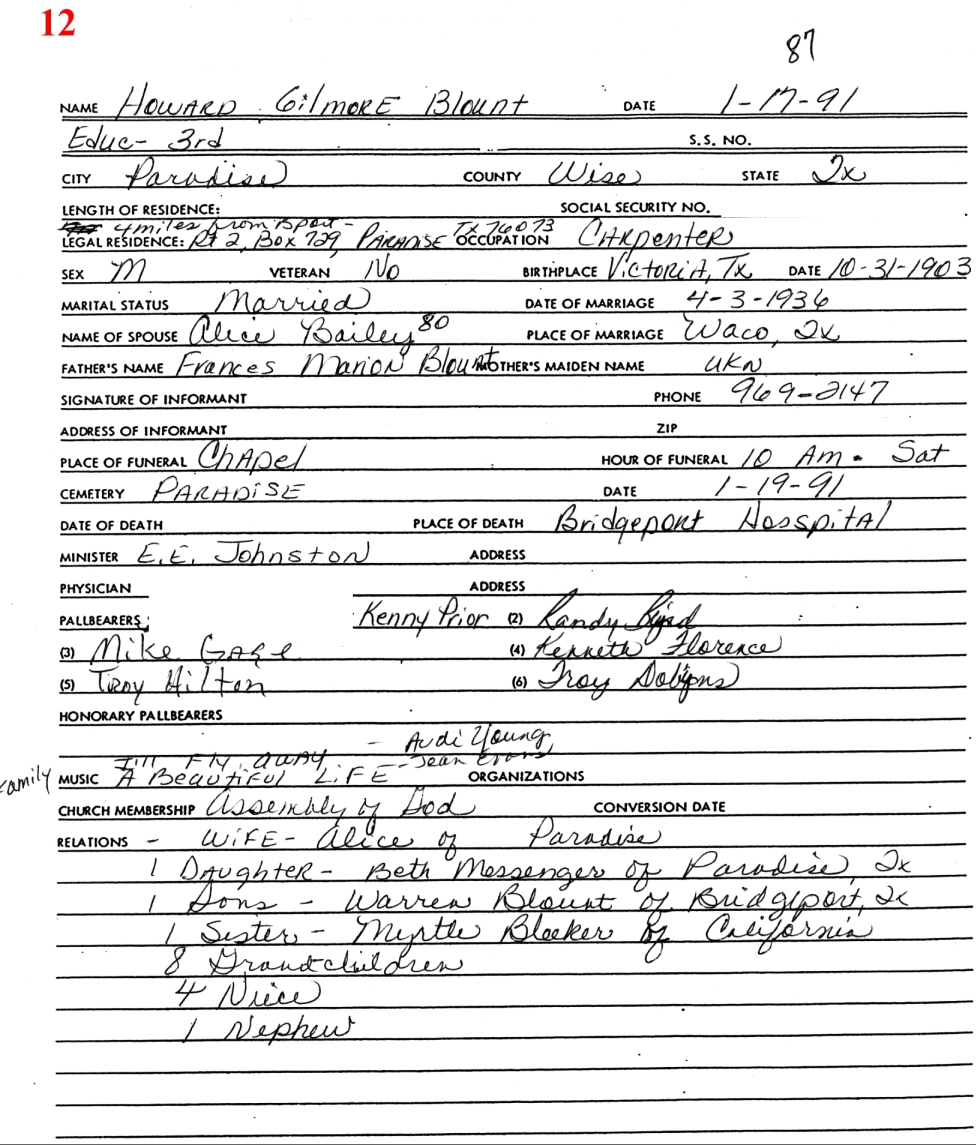 12
87
NAME Howard Gilmore Blount DATE 1-17-91
Educ- 3rd S.S. NO.
CITY Paradise COUNTY Wise STATE Tx
LENGTH OF RESIDENCE: SOCIAL SECURITY NO.
4 miles from Bport - TX 76073
LEGAL RESIDENCE: Rt 2, Box 729, Paradise OCCUPATION Carpenter
SEX M VETERAN No BIRTHPLACE Victoria, Tx DATE 10-31-1903
MARITAL STATUS Married DATE OF MARRIAGE 4-3-1936
NAME OF SPOUSE Alice Bailey 80 PLACE OF MARRIAGE Waco, Tx
FATHER'S NAME Frances Marion Blount MOTHER'S MAIDEN NAME UKN
SIGNATURE OF INFORMANT PHONE 969-2147
ADDRESS OF INFORMANT ZIP
PLACE OF FUNERAL Chapel HOUR OF FUNERAL 10 Am. Sat
CEMETERY Paradise DATE 1-19-91
DATE OF DEATH PLACE OF DEATH Bridgeport Hosspital
MINISTER E.E. Johnston ADDRESS
PHYSICIAN ADDRESS
PALLBEARERS: Kenny Prior (2) Randy
(3) Mike Gage (4) Kenneth Florence
(5) Troy Hilton (6) Troy
HONORARY PALLBEARERS
- Audi Young,
I'll Fly away - Jean Evans
Family MUSIC A Beautiful Life ORGANIZATIONS
CHURCH MEMBERSHIP Assembly of God CONVERSION DATE
RELATIONS - Wife - Alice of Paradise
1 Daughter - Beth Messenger of Paradise, Tx
1 Sons - Warren Blount of Bridgeport, Tx
1 Sister - Myrtle Bleeker of California
8 Grandchildren
4 Niece
1 Nephew